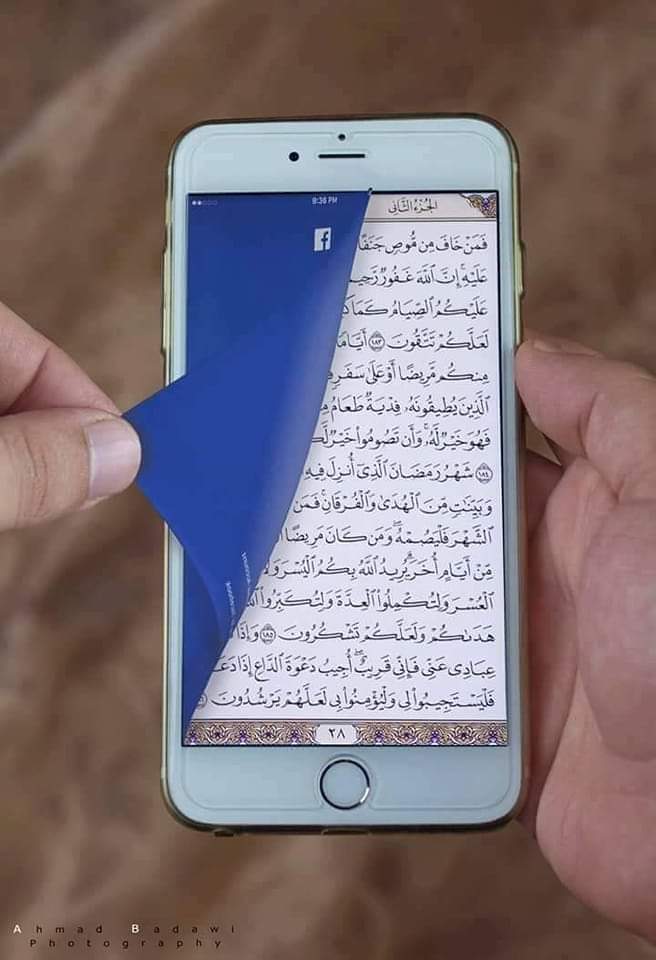 9:36 PM
f
الجزء الثاني
فَمَنْ خَافَ مِن مُّوصٍ جَنَفًا
عَلَيْهِ إِنَّ ٱللَّهَ غَفُورٌ رَّحِيـ
عَلَيْكُمُ ٱلصِّيَامُ كَمَا
لَعَلَّكُمْ تَتَّقُونَ ١٨٣ أَيَّامًا
مِنكُم مَّرِيضًا أَوْ عَلَىٰ سَفَرٍ
ٱلَّذِينَ يُطِيقُونَهُۥ فِدْيَةٌ طَعَامُ
فَهُوَ خَيْرٌ لَّهُۥ وَأَن تَصُومُوا۟ خَيْرٌ لَّكـ
١٨٤ شَهْرُ رَمَضَانَ ٱلَّذِىٓ أُنزِلَ فِيهِ
وَبَيِّنَـٰتٍ مِّنَ ٱلْهُدَىٰ وَٱلْفُرْقَانِ فَمَن
ٱلشَّهْرَ فَلْيَصُمْهُ وَمَن كَانَ مَرِيضًا
مِّنْ أَيَّامٍ أُخَرَ يُرِيدُ ٱللَّهُ بِكُمُ ٱلْيُسْرَ وَلَا
ٱلْعُسْرَ وَلِتُكْمِلُوا۟ ٱلْعِدَّةَ وَلِتُكَبِّرُوا۟
هَدَىٰكُمْ وَلَعَلَّكُمْ تَشْكُرُونَ ١٨٥ وَإِذَا
عِبَادِى عَنِّى فَإِنِّى قَرِيبٌ أُجِيبُ دَعْوَةَ ٱلدَّاعِ إِذَا دَعَـ
فَلْيَسْتَجِيبُوا۟ لِى وَلْيُؤْمِنُوا۟ بِى لَعَلَّهُمْ يَرْشُدُونَ
٢٨
Ahmad Badawi
Photography